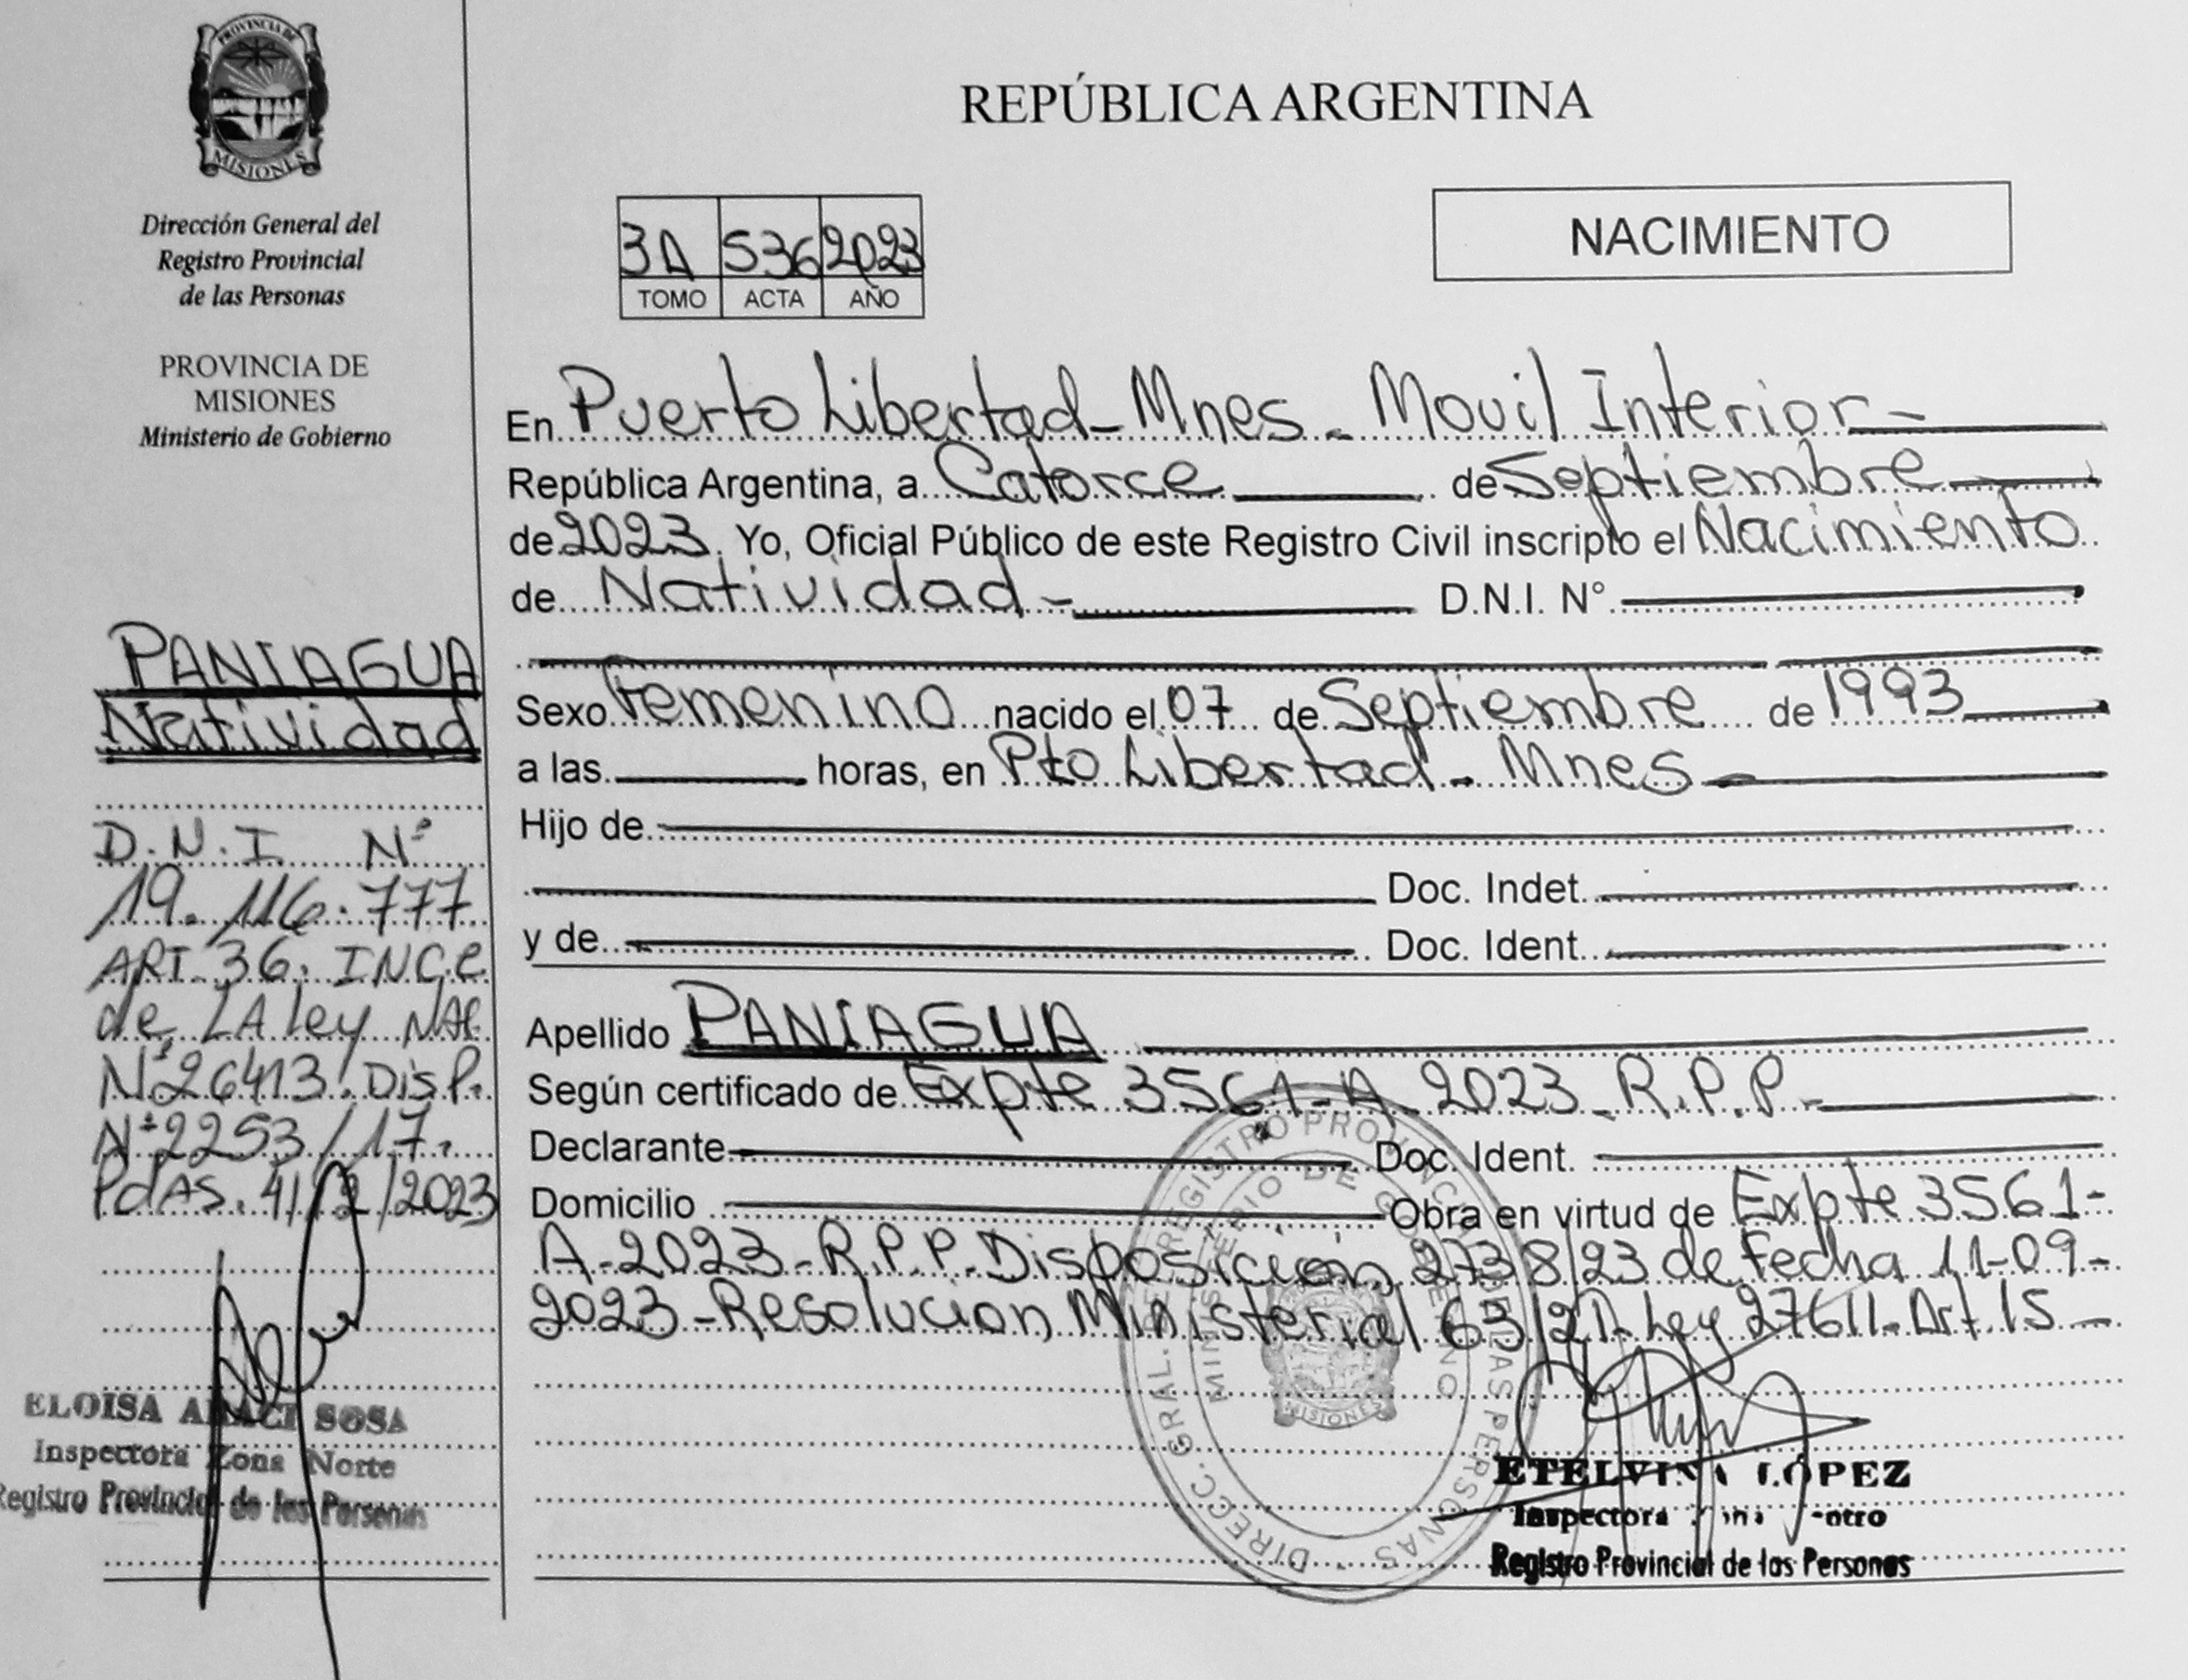 PROVINCIA DE
MISIONES
Dirección General del
Registro Provincial
de las Personas
PROVINCIA DE
MISIONES
Ministerio de Gobierno
PANIAGUA
Natividad
D.N.I. Nº
19.116.777
ART. 36. INC.C
de LA Ley NAC.
Nº26413. DISP.
Nº2253/17.
PdAS. 4/12/2023
ELOISA ARACI SOSA
Inspectora Zona Norte
Registro Provincial de las Personas
REPÚBLICA ARGENTINA
3A 536 2023
TOMO ACTA AÑO
NACIMIENTO
En Puerto Libertad - Mnes - Movil Interior -
República Argentina, a Catorce de Septiembre
de 2023. Yo, Oficial Público de este Registro Civil inscripto el Nacimiento
de Natividad - D.N.I. N°
Sexo Femenino nacido el 07 de Septiembre de 1993
a las horas, en Pto Libertad - Mnes -
Hijo de
Doc. Indet.
y de Doc. Ident.
Apellido PANIAGUA
Según certificado de Expte 3561-A-2023-R.P.P.-
Declarante Doc. Ident.
Domicilio Obra en virtud de Expte 3561-
A-2023-R.P.P. Disposición 2738/23 de Fecha 11-09-
2023-Resolución Ministerial 63/21. Ley 27611. Art. 15 -
DIRECC. GRAL. DEL REGISTRO PROVINCIAL DE LAS PERSONAS
MINISTERIO DE GOBIERNO
MISIONES
ETELVINA LÓPEZ
Inspectora Zona Centro
Registro Provincial de las Personas